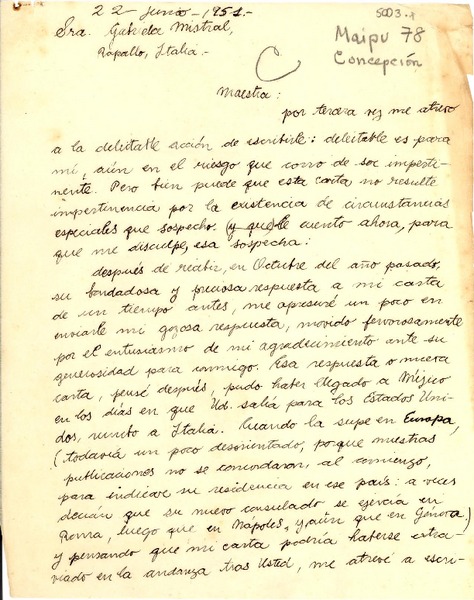 22 junio-1951.-
5003.
Sra. Gabriela Mistral,
Maipu 78
Rapallo, Italia.-
Concepción
Maestra:
por tercera vez me atrevo
a la deleitable acción de escribirle: deleitable es para
mí, aún en el riesgo que corro de ser imperti-
nente. Pero bien puede que esta carta no resulte
impertinencia por la existencia de circunstancias
especiales que sospecho. (y que) Le cuento ahora, para
que me disculpe, esa sospecha:
después de recibir, en Octubre del año pasado,
su bondadosa y preciosa respuesta a mi carta
de un tiempo antes, me apresuré un poco en
enviarle mi gozosa respuesta, movido fervorosamente
por el entusiasmo de mi agradecimiento ante su
generosidad para conmigo. Esa respuesta o nueva
carta, pensé después, pudo haber llegado a México
en los días en que Ud. salía para los Estados Uni-
dos, rumbo a Italia. Cuando la supe en Europa,
(todavía un poco desorientado, porque nuestras
publicaciones no se concordaron, al comienzo,
para indicar su residencia en ese país: a veces
decían que su nuevo consulado se ejercía en
Roma, luego que en Nápoles, y aún que en Génova)
y pensando que mi carta podría haberse extra-
viado en la andanza tras Usted, me atreví a escri-